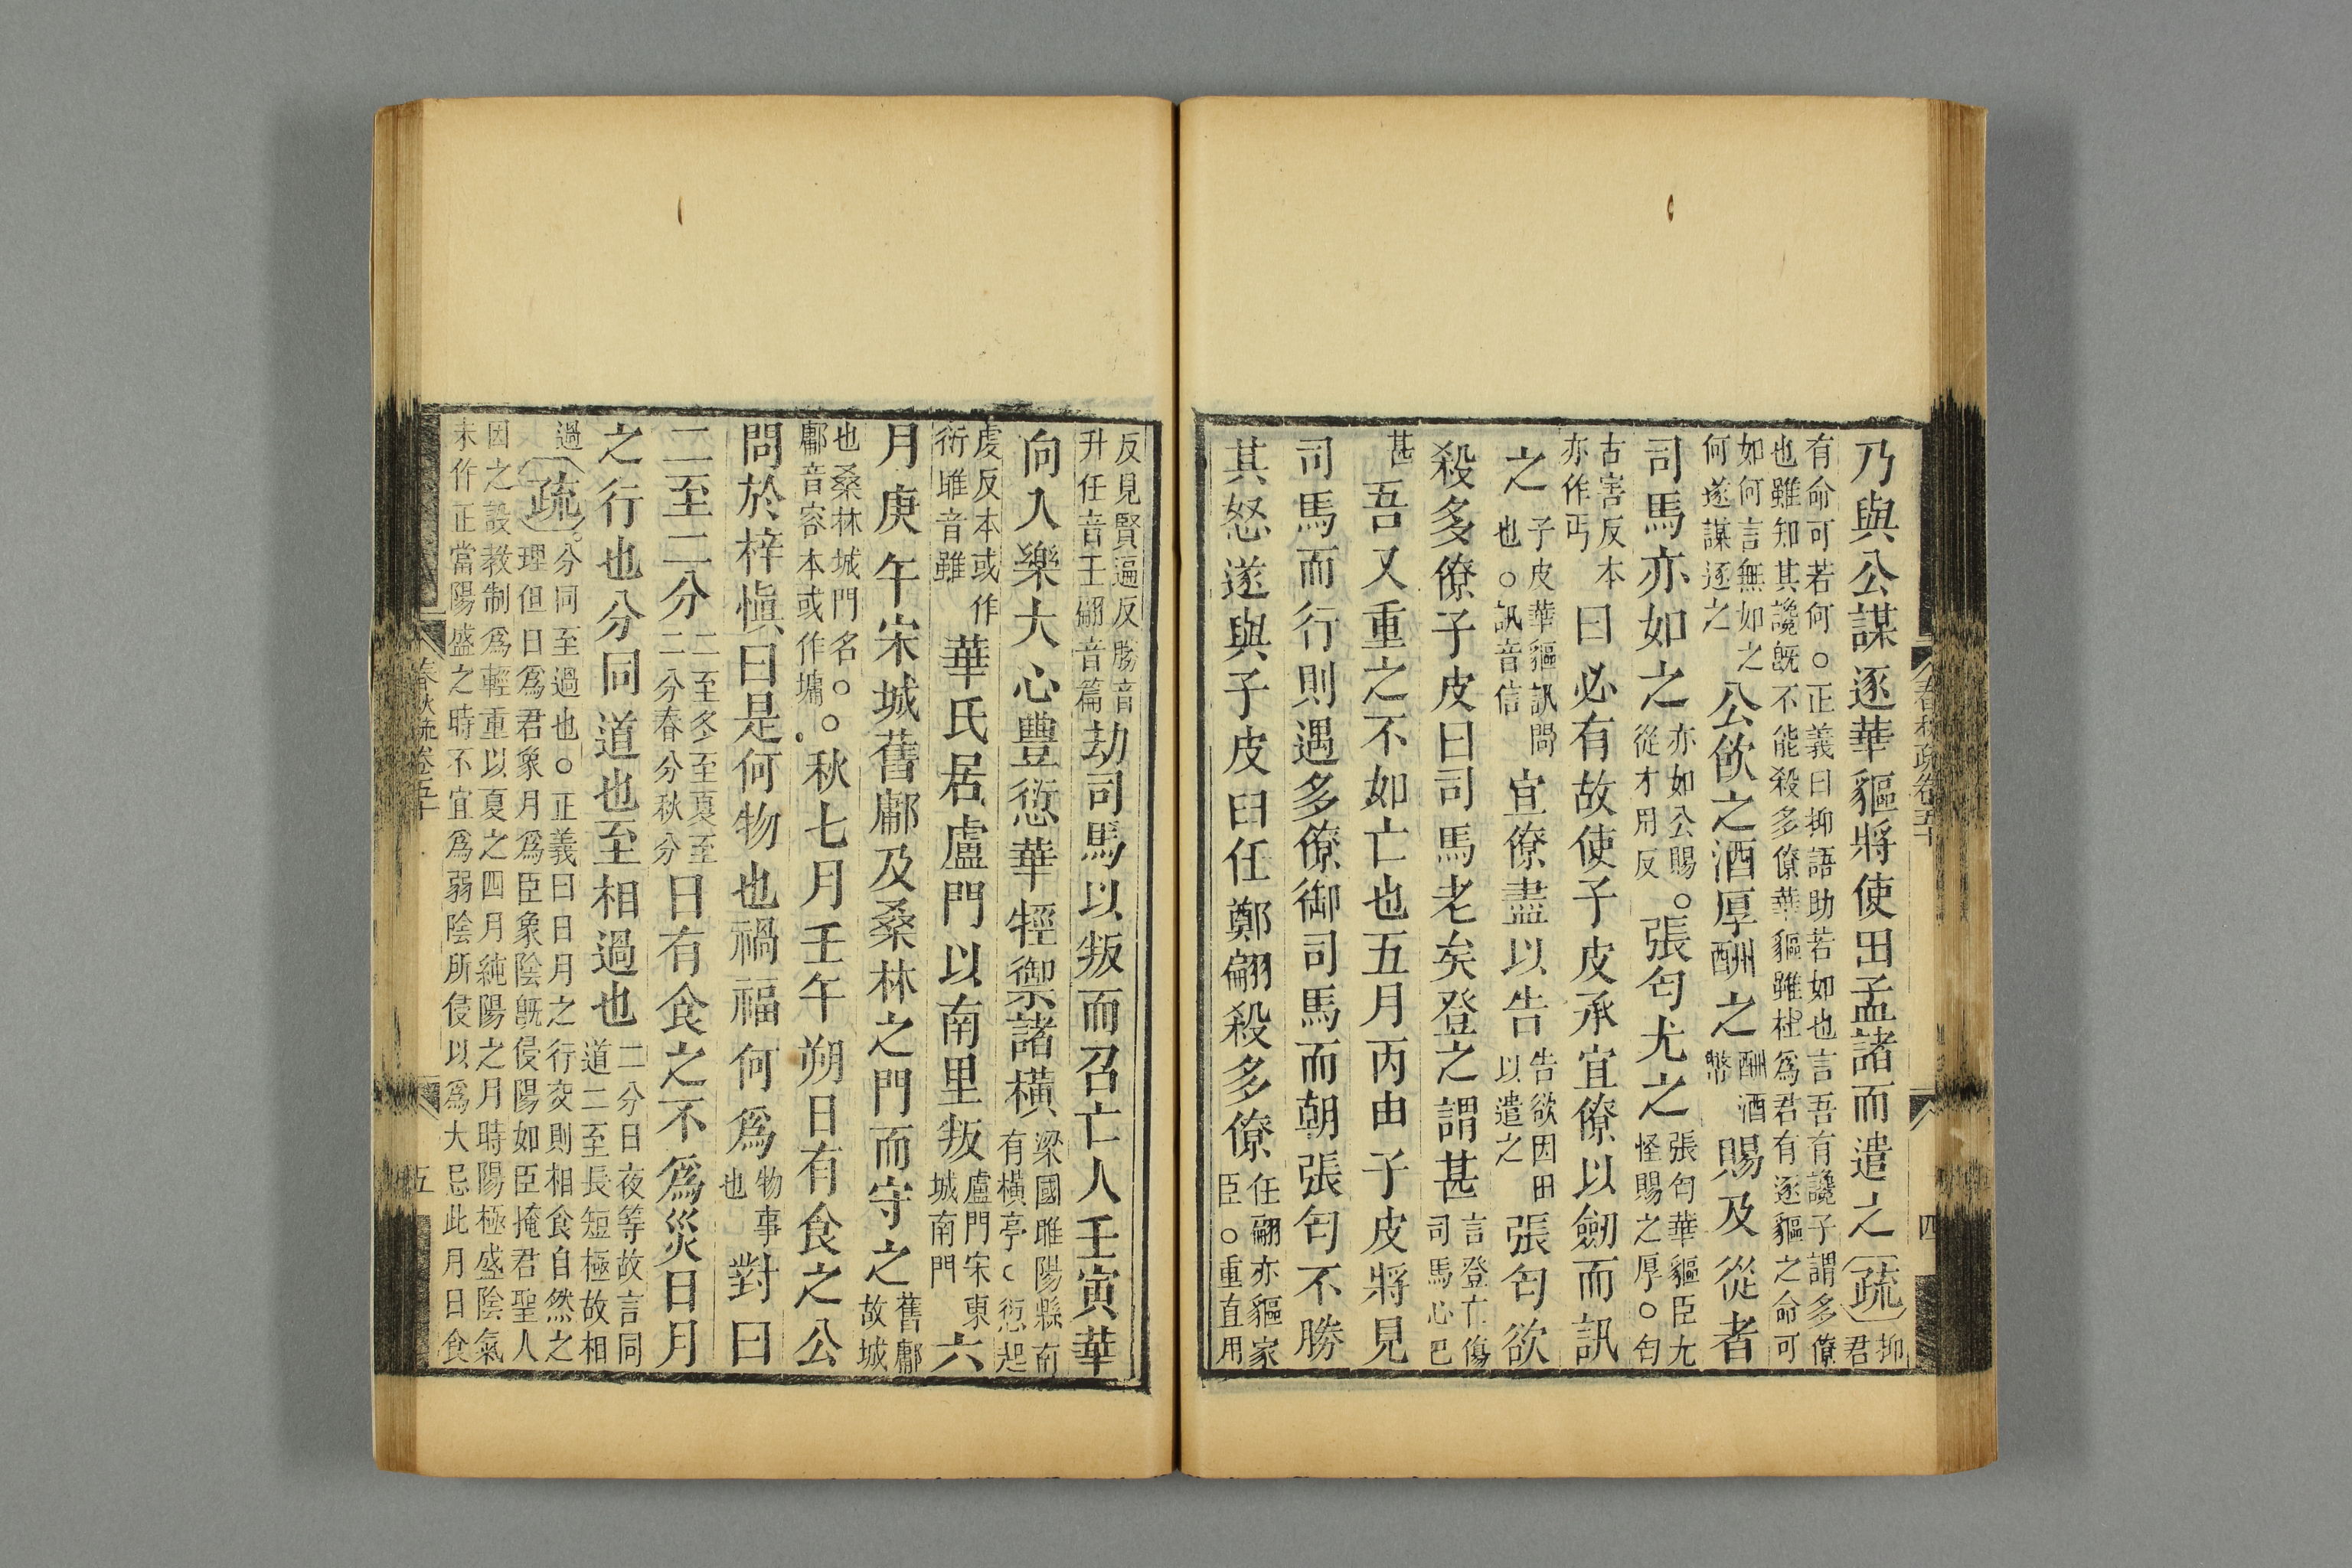 乃與公謀逐華貙將使田孟諸而遣之疏抑君
有命可若何○正義曰抑語助若如也言吾有讒子謂多僚
也雖知其讒既不能殺多僚華貙雖杜爲君有逐貙之命可
如何言無如之何遂謀逐之公飲之酒厚酬之酬酒幣賜及從者
司馬亦如之亦如公賜○從才用反張匄尤之張匄華貙臣尤怪賜之厚○匄
古害反本亦作丐曰必有故使子皮承宜僚以劒而訊
之子皮華貙訊問也○訊音信宜僚盡以告告欲因田以遣之張匄欲
殺多僚子皮曰司馬老矣登之謂甚言登亡傷司馬心巳
甚吾又重之不如亡也五月丙由子皮將見
司馬而行則遇多僚御司馬而朝張匄不勝
其怒遂與子皮臼任鄭翩殺多僚任翩亦貙家臣○重直用
反見賢遍反勝音升任音壬翩音篇劫司馬以叛而召亡人壬寅華
向入樂大心豐愆華牼禦諸橫梁國睢陽縣南有橫亭○愆起
虔反本或作㣔睢音雖華氏居盧門以南里叛盧門宋東城南門六
月庚午宋城舊鄘及桑林之門而守之舊鄘故城
也桑林城門名○鄘音容本或作墉○秋七月壬午朔日有食之公
問於梓愼曰是何物也禍福何爲物事也對曰
二至二分二至冬至夏至二分春分秋分日有食之不爲災日月
之行也分同道也至相過也二分日夜等故言同道二至長短極故相
過疏分同至過也○正義曰日月之行交則相食自然之
理但日爲君象月爲臣象陰既侵陽如臣掩君聖人
因之設教制爲輕重以夏之四月純陽之月時陽極盛陰氣
未作正當陽盛之時不宜爲弱陰所侵以爲大忌此月日食
春秋疏卷五十
四
春秋疏卷五十
五